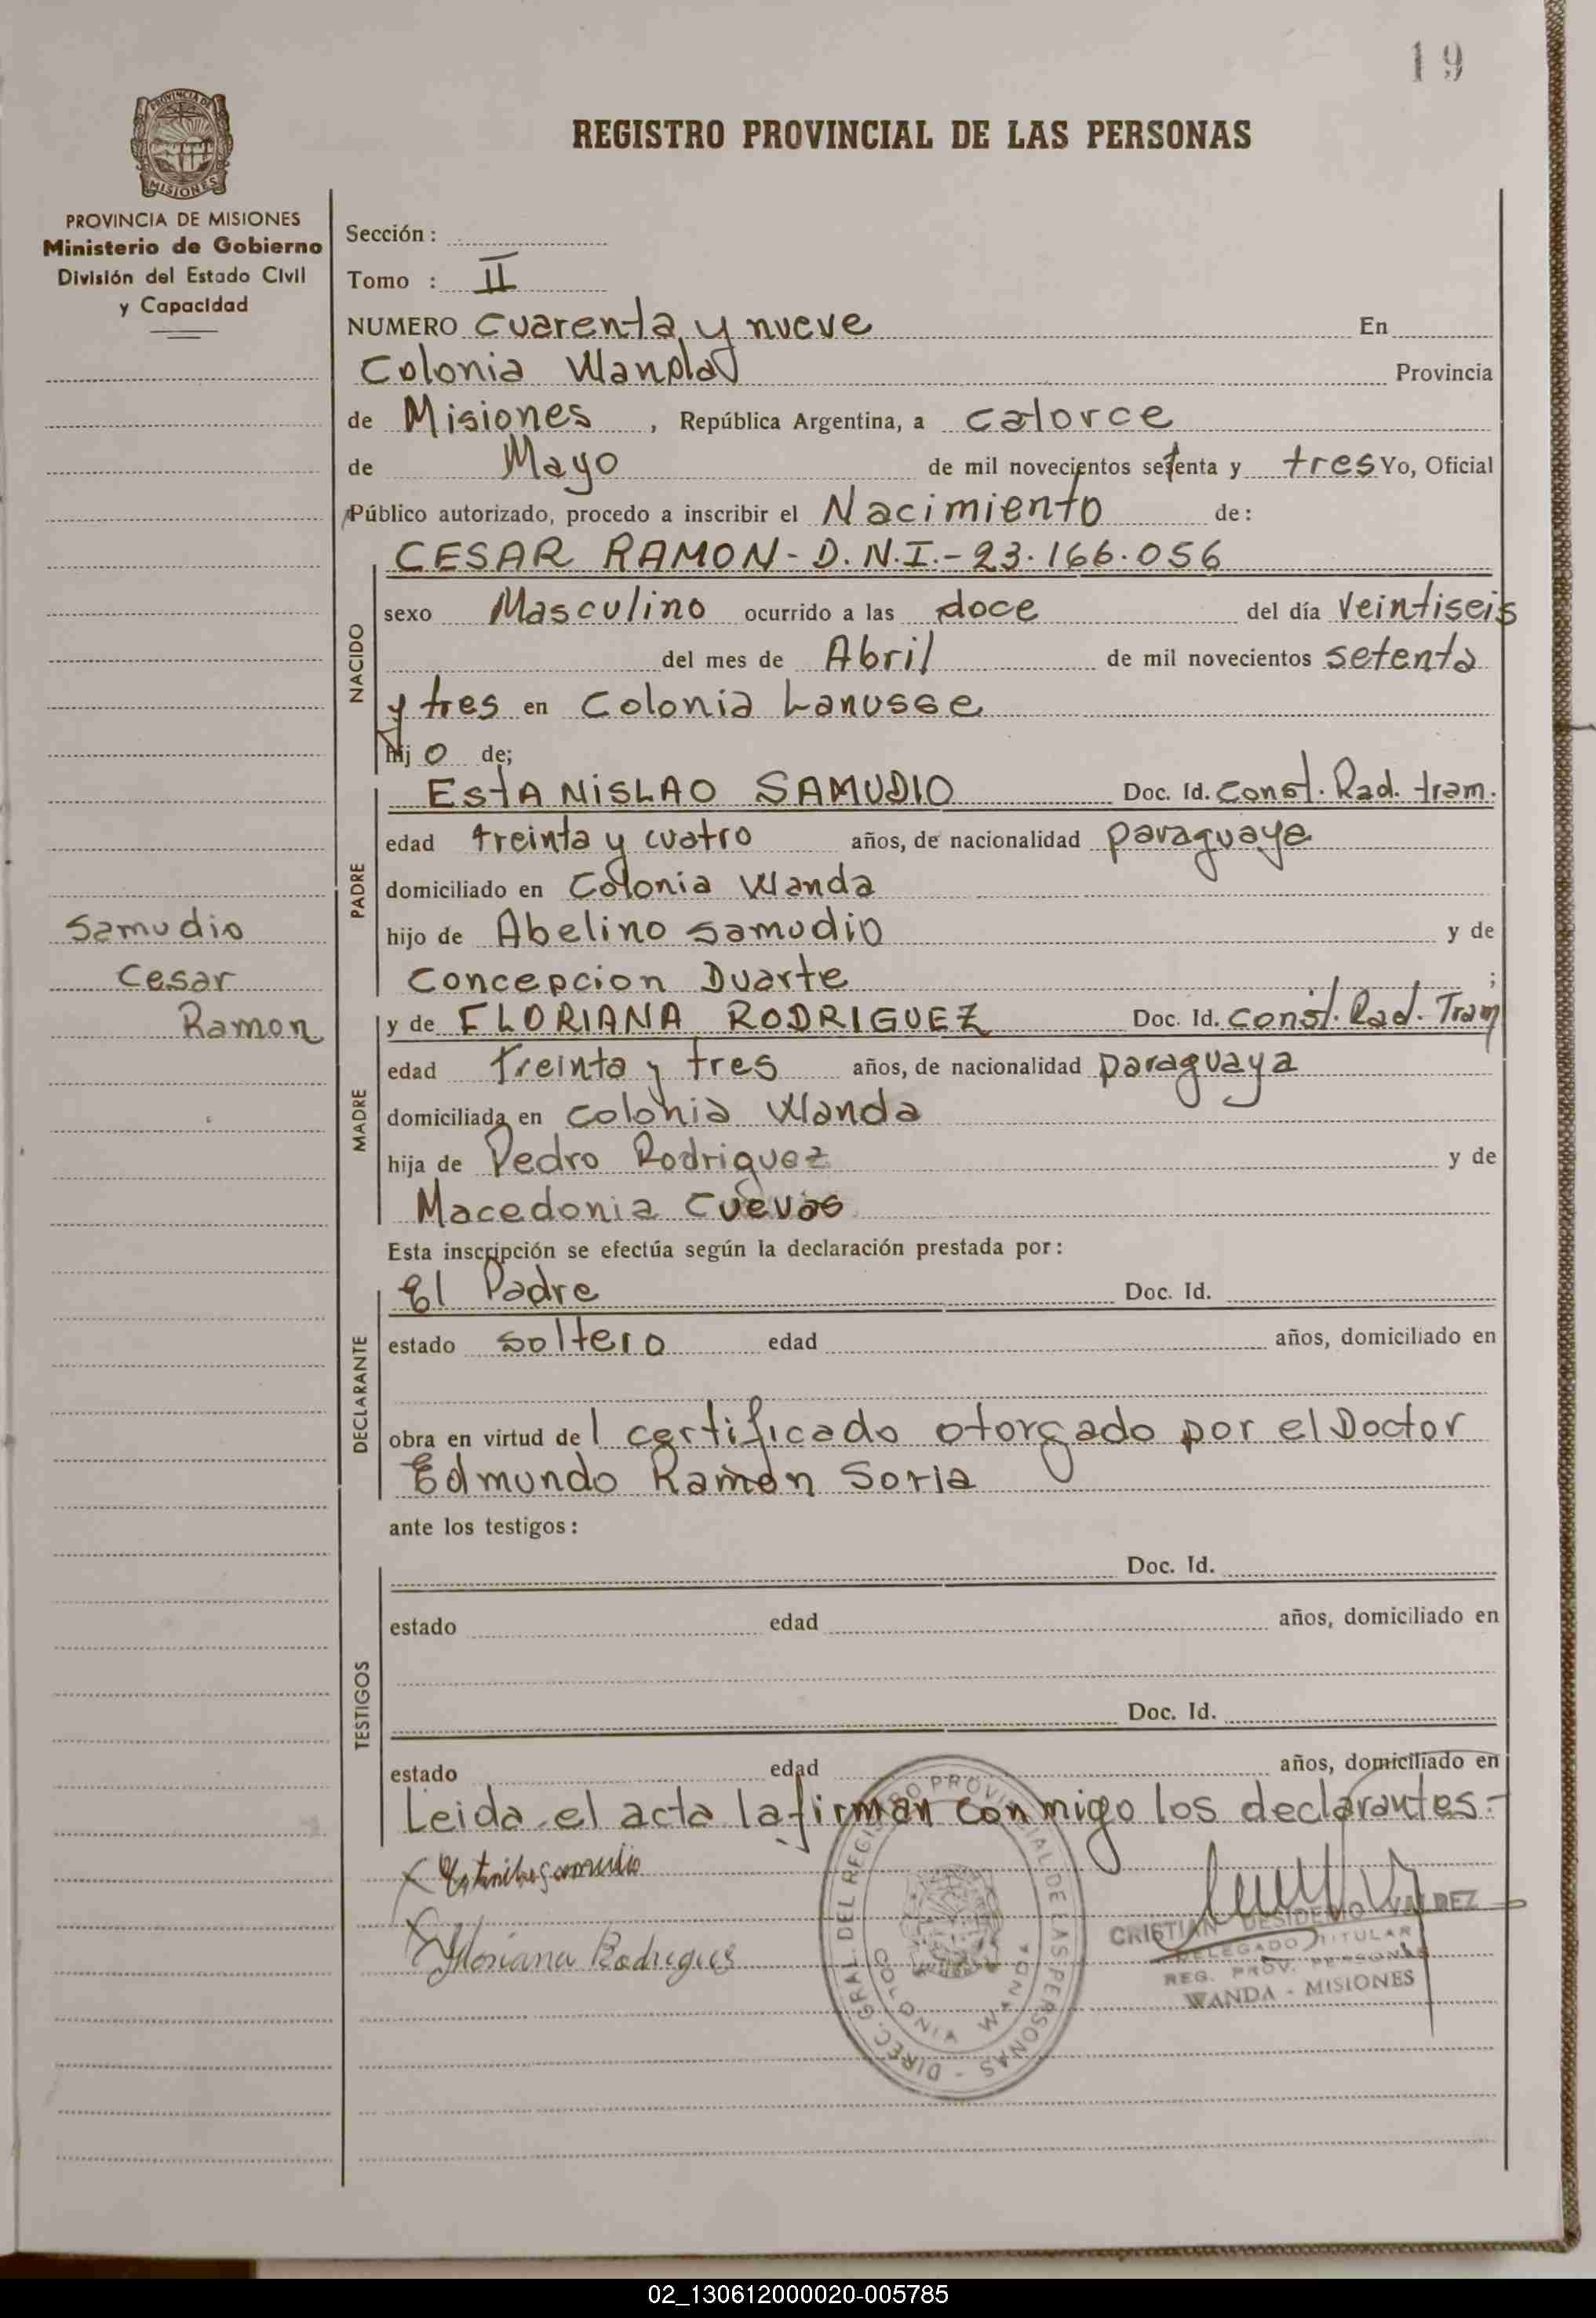 19
REGISTRO PROVINCIAL DE LAS PERSONAS
PROVINCIA DE MISIONES
MISIONES
PROVINCIA DE MISIONES
Ministerio de Gobierno
División del Estado Civil
y Capacidad
Sección :
Tomo : II
NUMERO Cuarenta y nueve En
Colonia Wanda Provincia
de Misiones , República Argentina, a catorce
de Mayo de mil novecientos setenta y tres Yo, Oficial
Público autorizado, procedo a inscribir el Nacimiento de :
CESAR RAMON - D.N.I.- 23.166.056
NACIDO
sexo Masculino ocurrido a las doce del día veintiseis
del mes de Abril de mil novecientos setenta
y tres en Colonia Lanusse
hijo de;
ESTANISLAO SAMUDIO Doc. Id. Const. Rad. tram.
PADRE
edad treinta y cuatro años, de nacionalidad paraguaya
domiciliado en Colonia Wanda
hijo de Abelino Samudio y de
Concepcion Duarte ;
Samudio
Cesar
Ramon
y de FLORIANA RODRIGUEZ Doc. Id. Const. Rad. Tram
MADRE
edad treinta y tres años, de nacionalidad paraguaya
domiciliada en colonia Wanda
hija de Pedro Rodriguez y de
Macedonia Cuevas
Esta inscripción se efectúa según la declaración prestada por :
DECLARANTE
El Padre Doc. Id.
estado soltero edad años, domiciliado en
obra en virtud de l certificado otorgado por el Doctor
Edmundo Ramon Soria
ante los testigos :
TESTIGOS
Doc. Id.
estado edad años, domiciliado en
Doc. Id.
estado edad años, domiciliado en
Leida el acta la firman conmigo los declarantes.-
Floriana Rodrigues
DIREC. GRAL. DEL REGISTRO PROVINCIAL DE LAS PERSONAS -
COLONIA WANDA
CRISTIAN DESIDERIO VALDEZ
DELEGADO TITULAR
REG. PROV. PERSONAS
WANDA - MISIONES
02_130612000020-005785